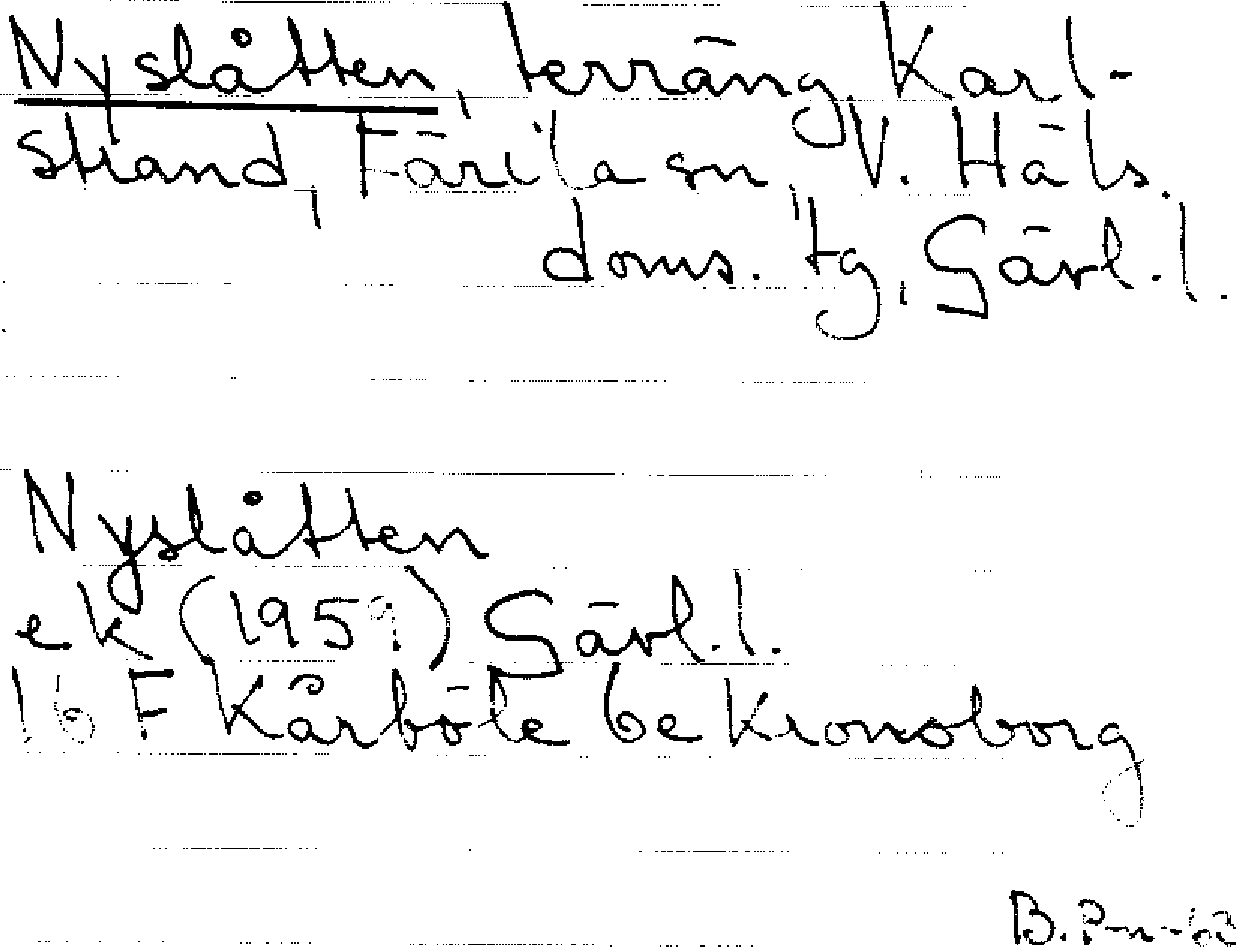 Nyslåtten, terräng, Karl-
strand, Färila sn, V. Häls.
doms. tg, Gävl. l.
Nyslåtten
ek (1959) Gävl. l.
16 F Kårböle 6e Kronoborg
B. P-n -63